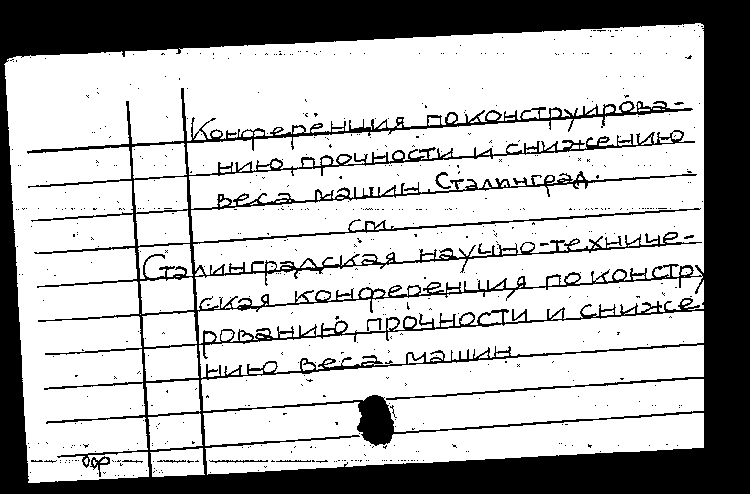 Конференция по конструирова-
нию, прочности и снижению
веса машин. Сталинград.
см.
Сталинградская научно-техниче-
ская конференция по констру
рованию, прочности и сниже
нию веса машин.